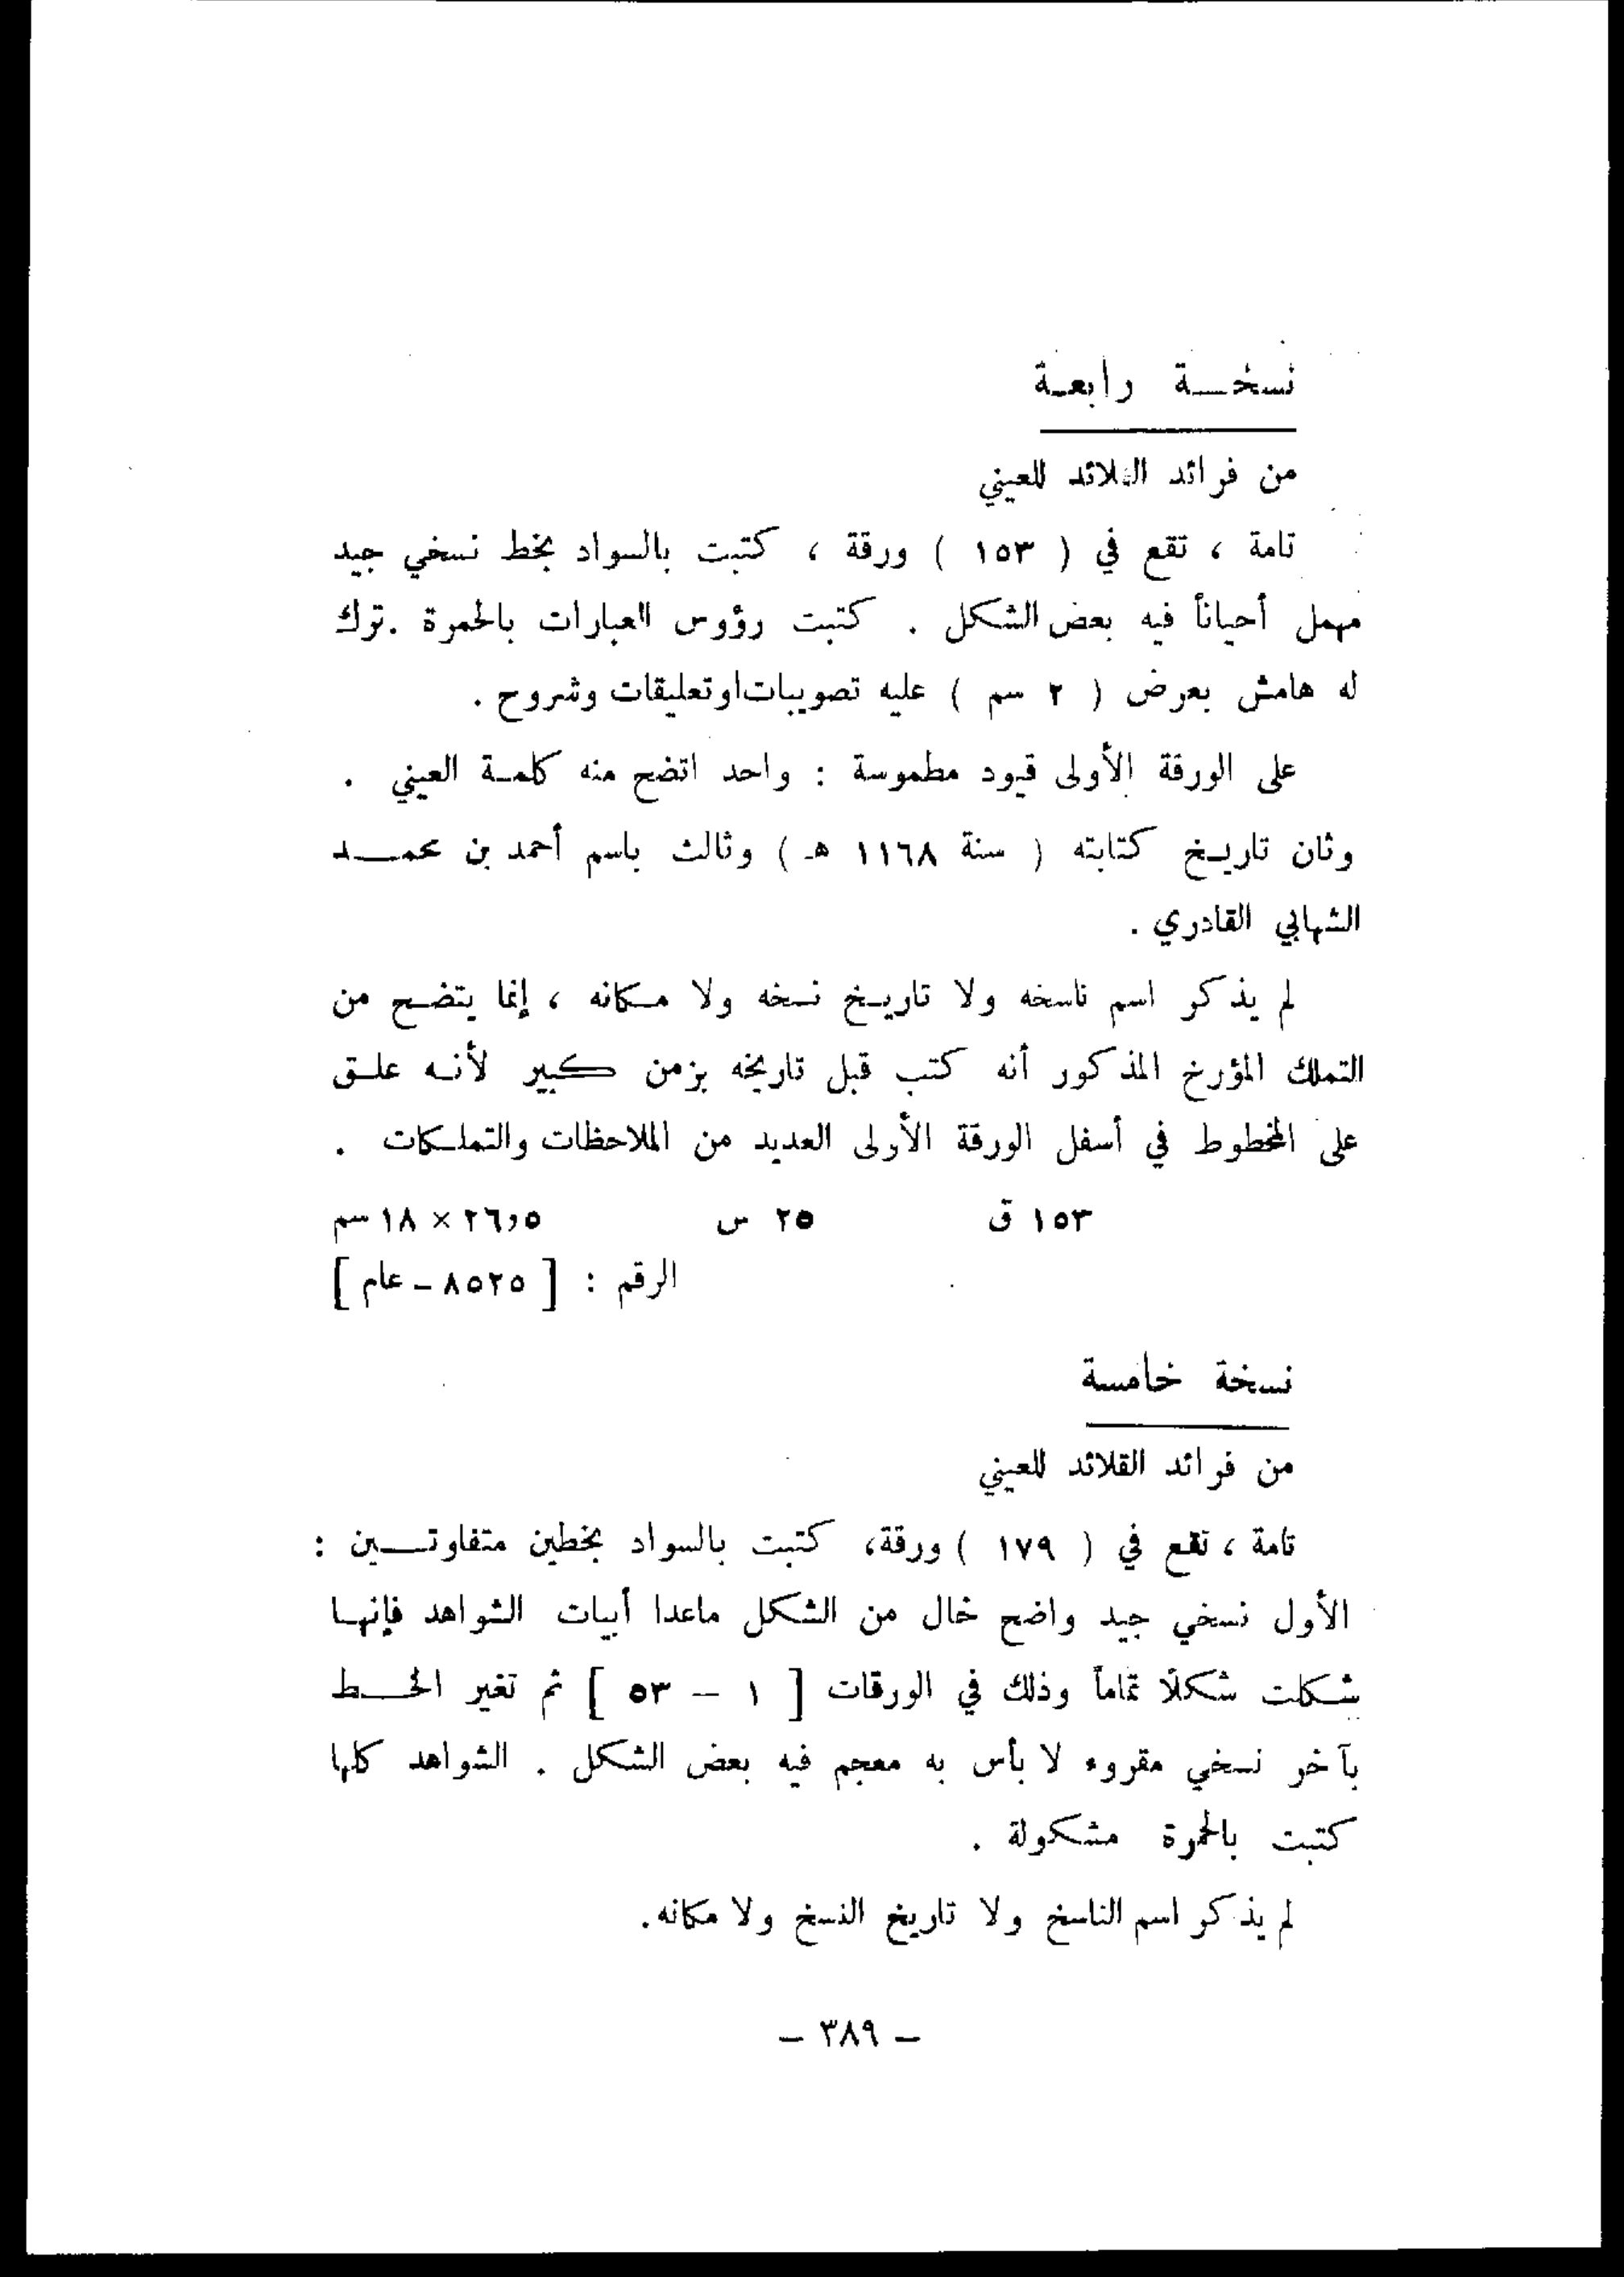 نسخة رابعة
من فرائد القلائد للعيني
تامة ، تقع في ( ١٥٣ ) ورقة ، كتبت بالسواد بخط نسخي جيد
مهمل أحياناً فيه بعض الشكل . كتبت رؤوس العبارات بالحمرة . ترك
له هامش بعرض ( ٢ سم ) عليه تصويبات او تعليقات وشروح .
على الورقة الأولى قيود مطموسة : واحد اتضح منه كلمة العيني .
وثان تاريخ كتابته ( سنة ١١٦٨ هـ ) وثالث باسم أحمد بن محمد
الشهابي القادري .
لم يذكر اسم ناسخه ولا تاريخ نسخه ولا مكانه ، إنما يتضح من
التملك المؤرخ المذكور أنه كتب قبل تاريخه بزمن كبير لأنه علق
على المخطوط في أسفل الورقة الأولى العديد من الملاحظات والتملكات .
١٥٣ ق ٢٥ س ٢٦,٥ × ١٨ سم
الرقم : [ ٨٥٢٥ - عام ]
نسخة خامسة
من فرائد القلائد للعيني
تامة ، تقع في ( ١٧٩ ) ورقة، كتبت بالسواد بخطين متفاوتين :
الأول نسخي جيد واضح خال من الشكل ماعدا أبيات الشواهد فإنها
شكلت شكلاً تماماً وذلك في الورقات [ ١ - ٥٣ ] ثم تغير الخط
بآخر نسخي مقروء لا بأس به معجم فيه بعض الشكل . الشواهد كلها
كتبت بالحمرة مشكولة .
لم يذكر اسم الناسخ ولا تاريخ النسخ ولا مكانه.
- ٣٨٩ -